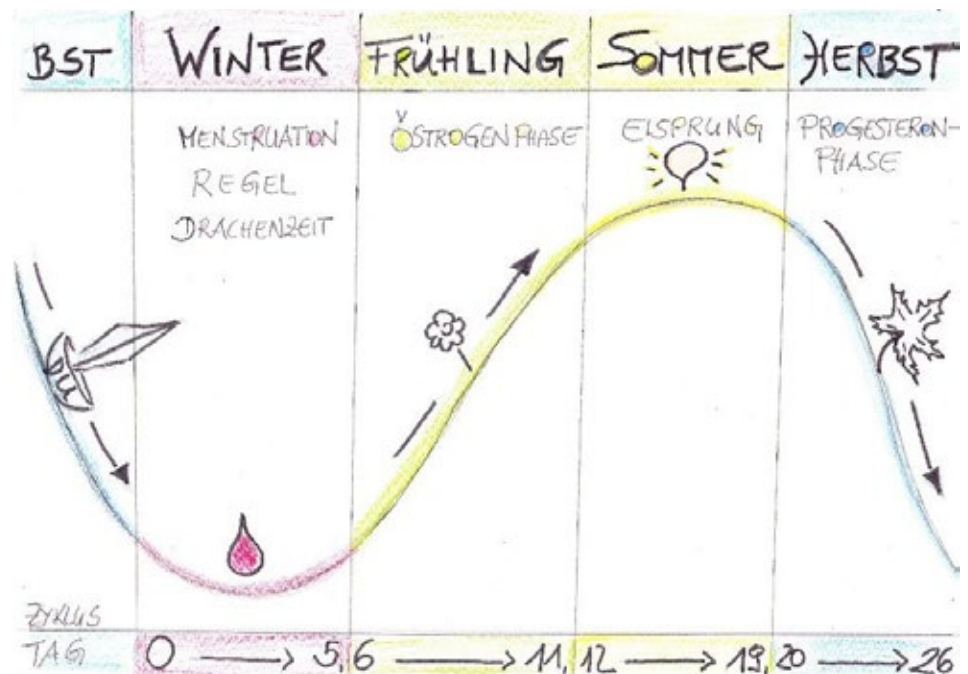 BST WINTER FRÜHLING SOMMER HERBST
MENSTRUATION
REGEL
DRACHENZEIT
ÖSTROGENPHASE
EISPRUNG
PROGESTERON-
PHASE
ZYKLUS
TAG 0 → 5, 6 → 11, 12 → 19, 20 → 26